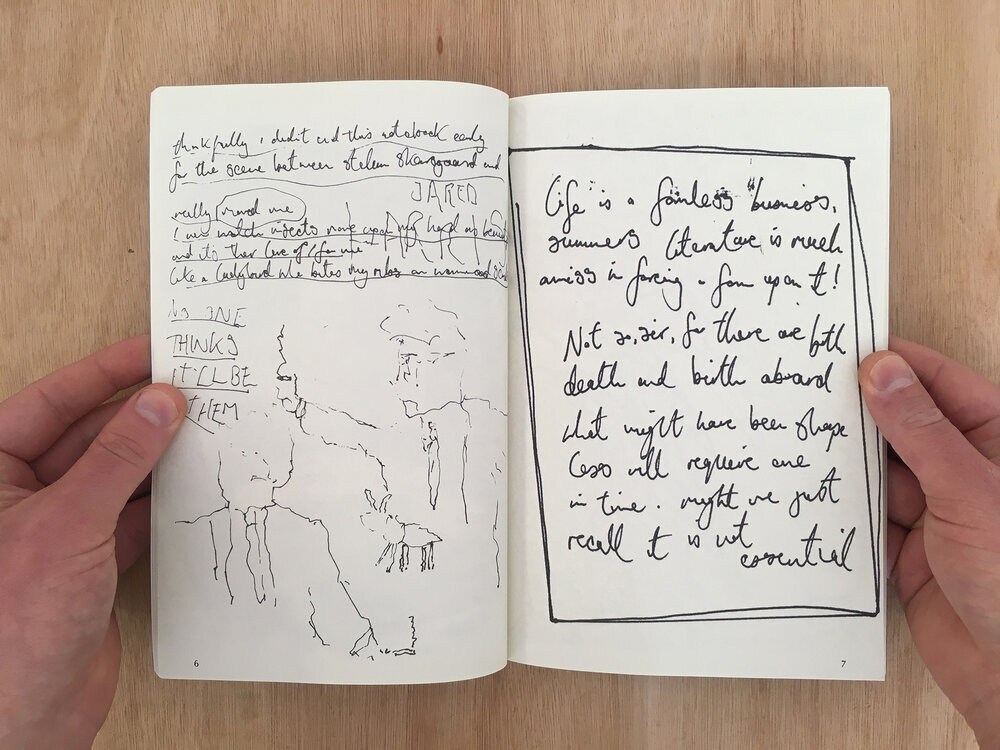 thinkfully i didit end this notebook early
for the scene between stellan skarsgaard and
JARED
HARRIS
really moved me
I can watch insects move upon my hand
and it's their love of/for me
like a ladybird who bites my
NO ONE
THINKS
IT'LL BE
THEM
6
Life is a formless business,
summers literature is much
amiss in forcing a form upon it!
Not so, sir, for there are both
death and birth aboard
what might have been shape
less will require one
in time. might we just
recall it is not
essential
7